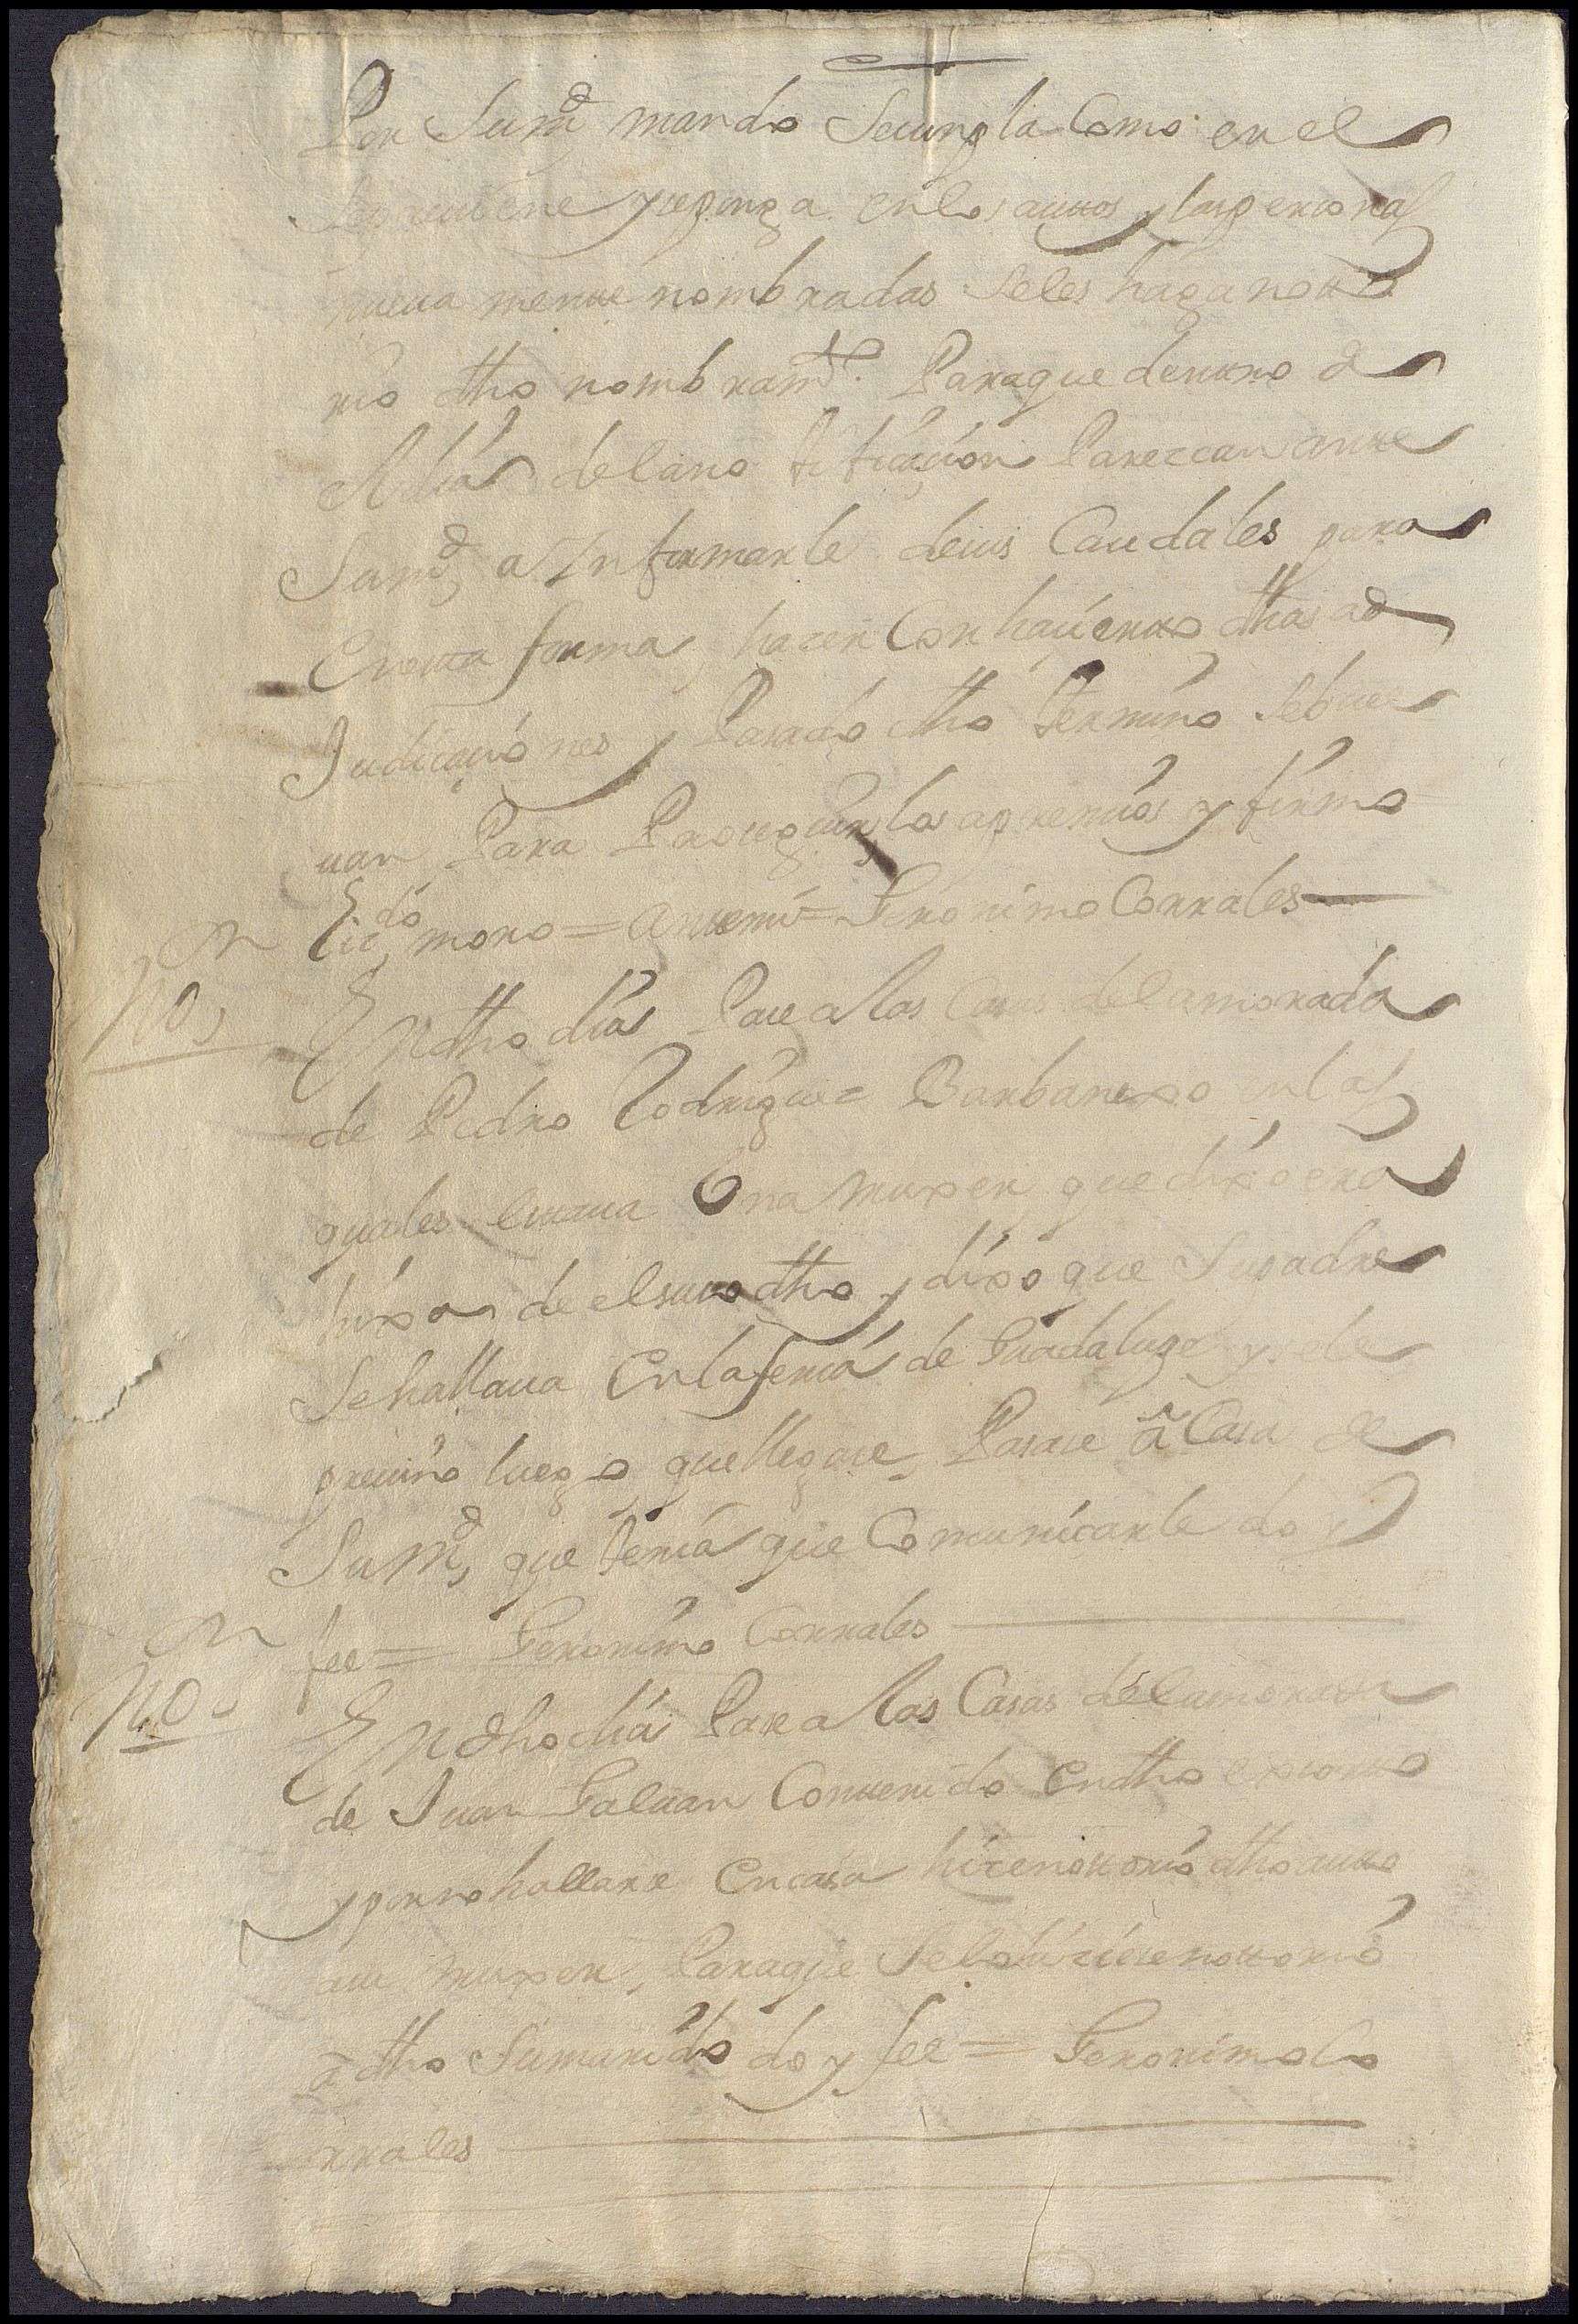 Por Sumd mando Secunpla Como en el
Secontiene yseponga en los auttos y laspersonas
nueua mente nombradas Seles haga notto
rio dho nombramto. Paraque dentro de
dia delano tificaçion Parezcan ante
Sumd, a Informarle desus Caudales para
En esta forma, hacer Con haçierto dhas ad
Judicacio nes y Pasado dho termino Sebuel
uan Para Proseguir, los apremios y firmo
Licdo, moro = antemi = Geronimo Corrales
no, En dho dia Pase a las Casas delamorada
de Pedro Rodriguez Barbanexo en las
quales estaua Una muxer que dixo era
hixa de elsuso dho y dixo que Supadre
Sehallaua En la feria de Guadalupe y sele
preuino luego, quellegase, Pasase â Casa de
Sumd, que tenia que Comunicarle do i
fee = Geronimo Corrales
no, En dho dia Pase a las Casas de lamorada
de Juan Galuan Contenido en dho
y porno hallarse en casa hice nottorio dho autto
asu muxer, Paraque Selo hiciese nottorio
â dho Sumarido do y fee = Geronimo Co
rrales